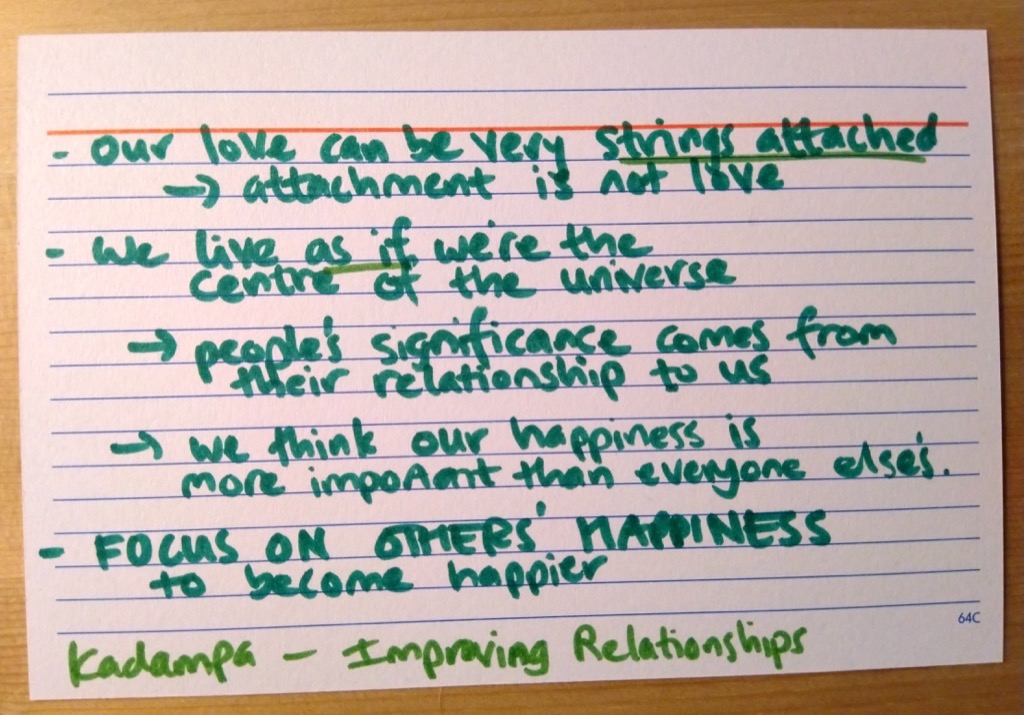 - Our love can be very strings attached
→ attachment is not love
- We live as if we're the
centre of the universe
→ people's significance comes from
their relationship to us
→ we think our happiness is
more important than everyone else's.
- FOCUS ON OTHERS' HAPPINESS
to become happier
64C
Kadampa - Improving Relationships